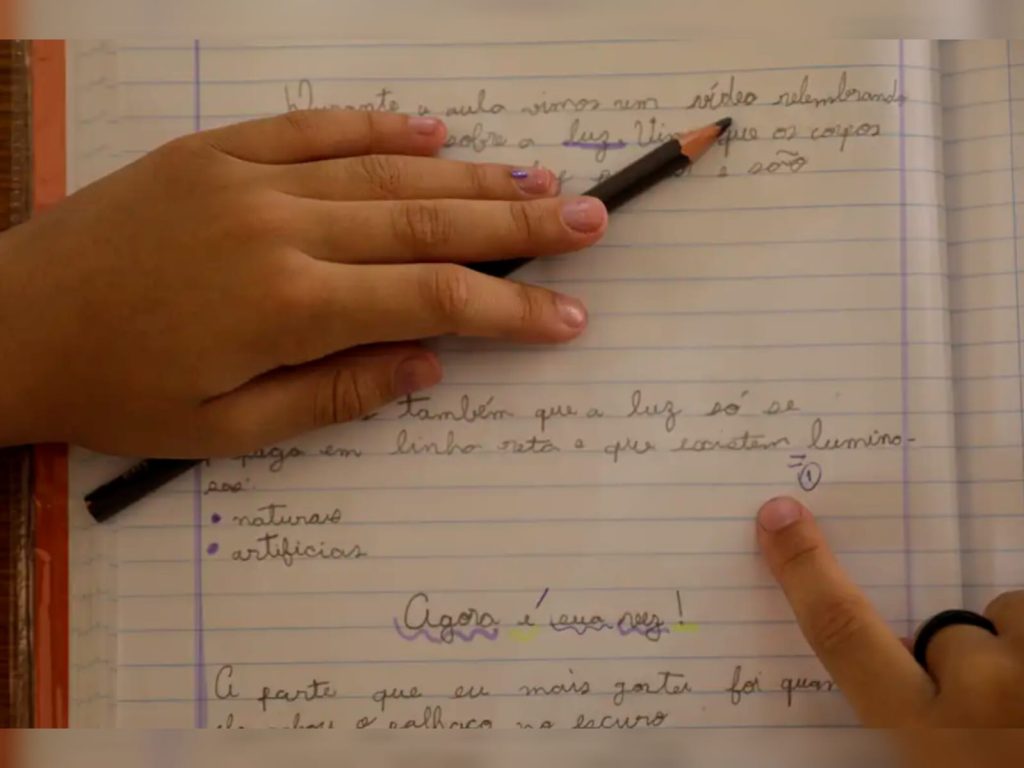 Durante a aula vimos um vídeo relembrando
sobre a luz. que os corpos
e são
também que a luz só se
em linha reta e que existem lumino-
sas:
①
• naturais
• artificias
Agora é sua vez!
A parte que eu mais gostei foi
o palhaço no escuro